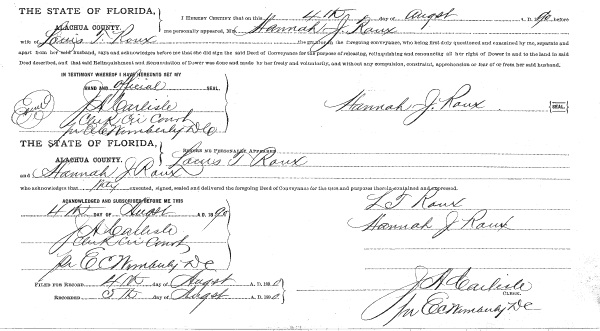 THE STATE OF FLORIDA,
ALACHUA COUNTY.
I HEREBY CERTIFY that on this 4th day of Augst A. D. 1890 before
me personally appeared, Mrs Hannah J. Roux
wife of Louis T. Roux the grantor in the foregoing conveyance, who being first duly questioned and examined by me, separate and
apart from her said husband, says and acknowledges before me that she did sign the said Deed of Conveyance for the purpose of releasing, relinquishing and renouncing all her right of Dower in and to the land in said
Deed described, and that said Relinquishment and Renunciation of Dower was done and made by her freely and voluntarily, and without any compulsion, constraint, apprehension or fear of or from her said husband.
IN TESTIMONY WHEREOF I HAVE HEREUNTO SET MY
HAND AND official SEAL,
J A Carlisle
Clerk Cir Court
per E C Wimberly D C
Hannah J. Roux [SEAL.]
THE STATE OF FLORIDA,
ALACHUA COUNTY.
BEFORE ME PERSONALLY APPEARED Louis T Roux
and Hannah J Roux
who acknowledges that they executed, signed, sealed and delivered the foregoing Deed of Conveyance for the uses and purposes therein contained and expressed.
ACKNOWLEDGED AND SUBSCRIBED BEFORE ME THIS
4th DAY OF Augst A. D. 1890
J A Carlisle
Clerk Cir Court
per E C Wimberly D C
L T Roux
Hannah J Roux
FILED FOR RECORD 4th day of Augst A. D. 1890
RECORDED 5th day of Augst A. D. 1890
J A Carlisle
CLERK.
per E C Wimberly D C